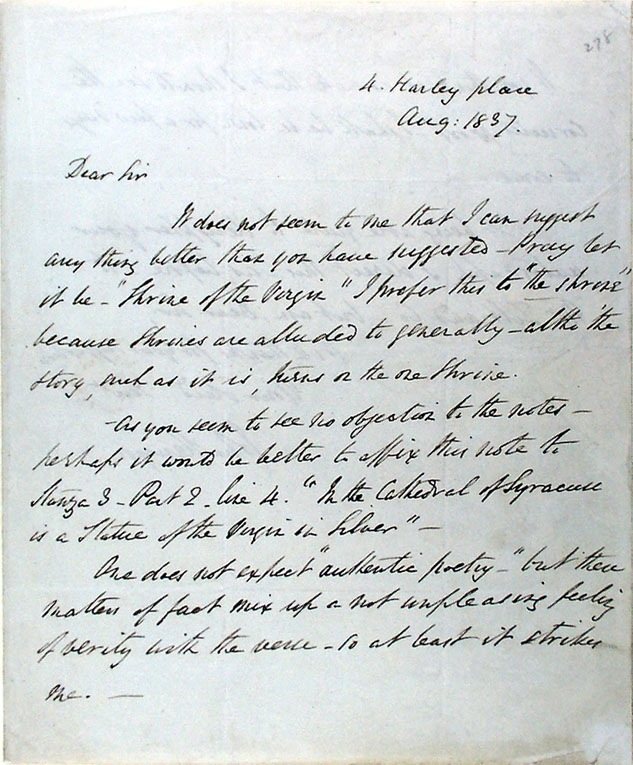 278
4. Harley place
Aug: 1837.
Dear Sir
It does not seem to me that I can suggest
any thing better than you have suggested - Pray let
it be - "Shrine of the Virgin" I prefer this to "the shrine"
because Shrines are alluded to generally - altho' the
story, such as it is, turns on the one Shrine.
- As you seem to see no objection to the notes -
perhaps it would be better to affix this note to
Stanza 3 - Part 2 - line 4. "In the Cathedral of Syracuse
is a Statue of the Virgin in Silver" -
One does not expect "authentic poetry -" but these
matters of fact mix up a not unpleasing feeling
of verity with the verse - so at least it strikes
me. -